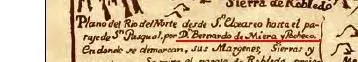 Sierra de Robledo
Plano del Rio del Norte desde S.n Eleareo hasta el pa-
raje de S.n Pasqual, por D. Bernardo de Miera y Pacheco.
En donde se demarcan, sus Margenes, Sierras y
el paraje de Robledo